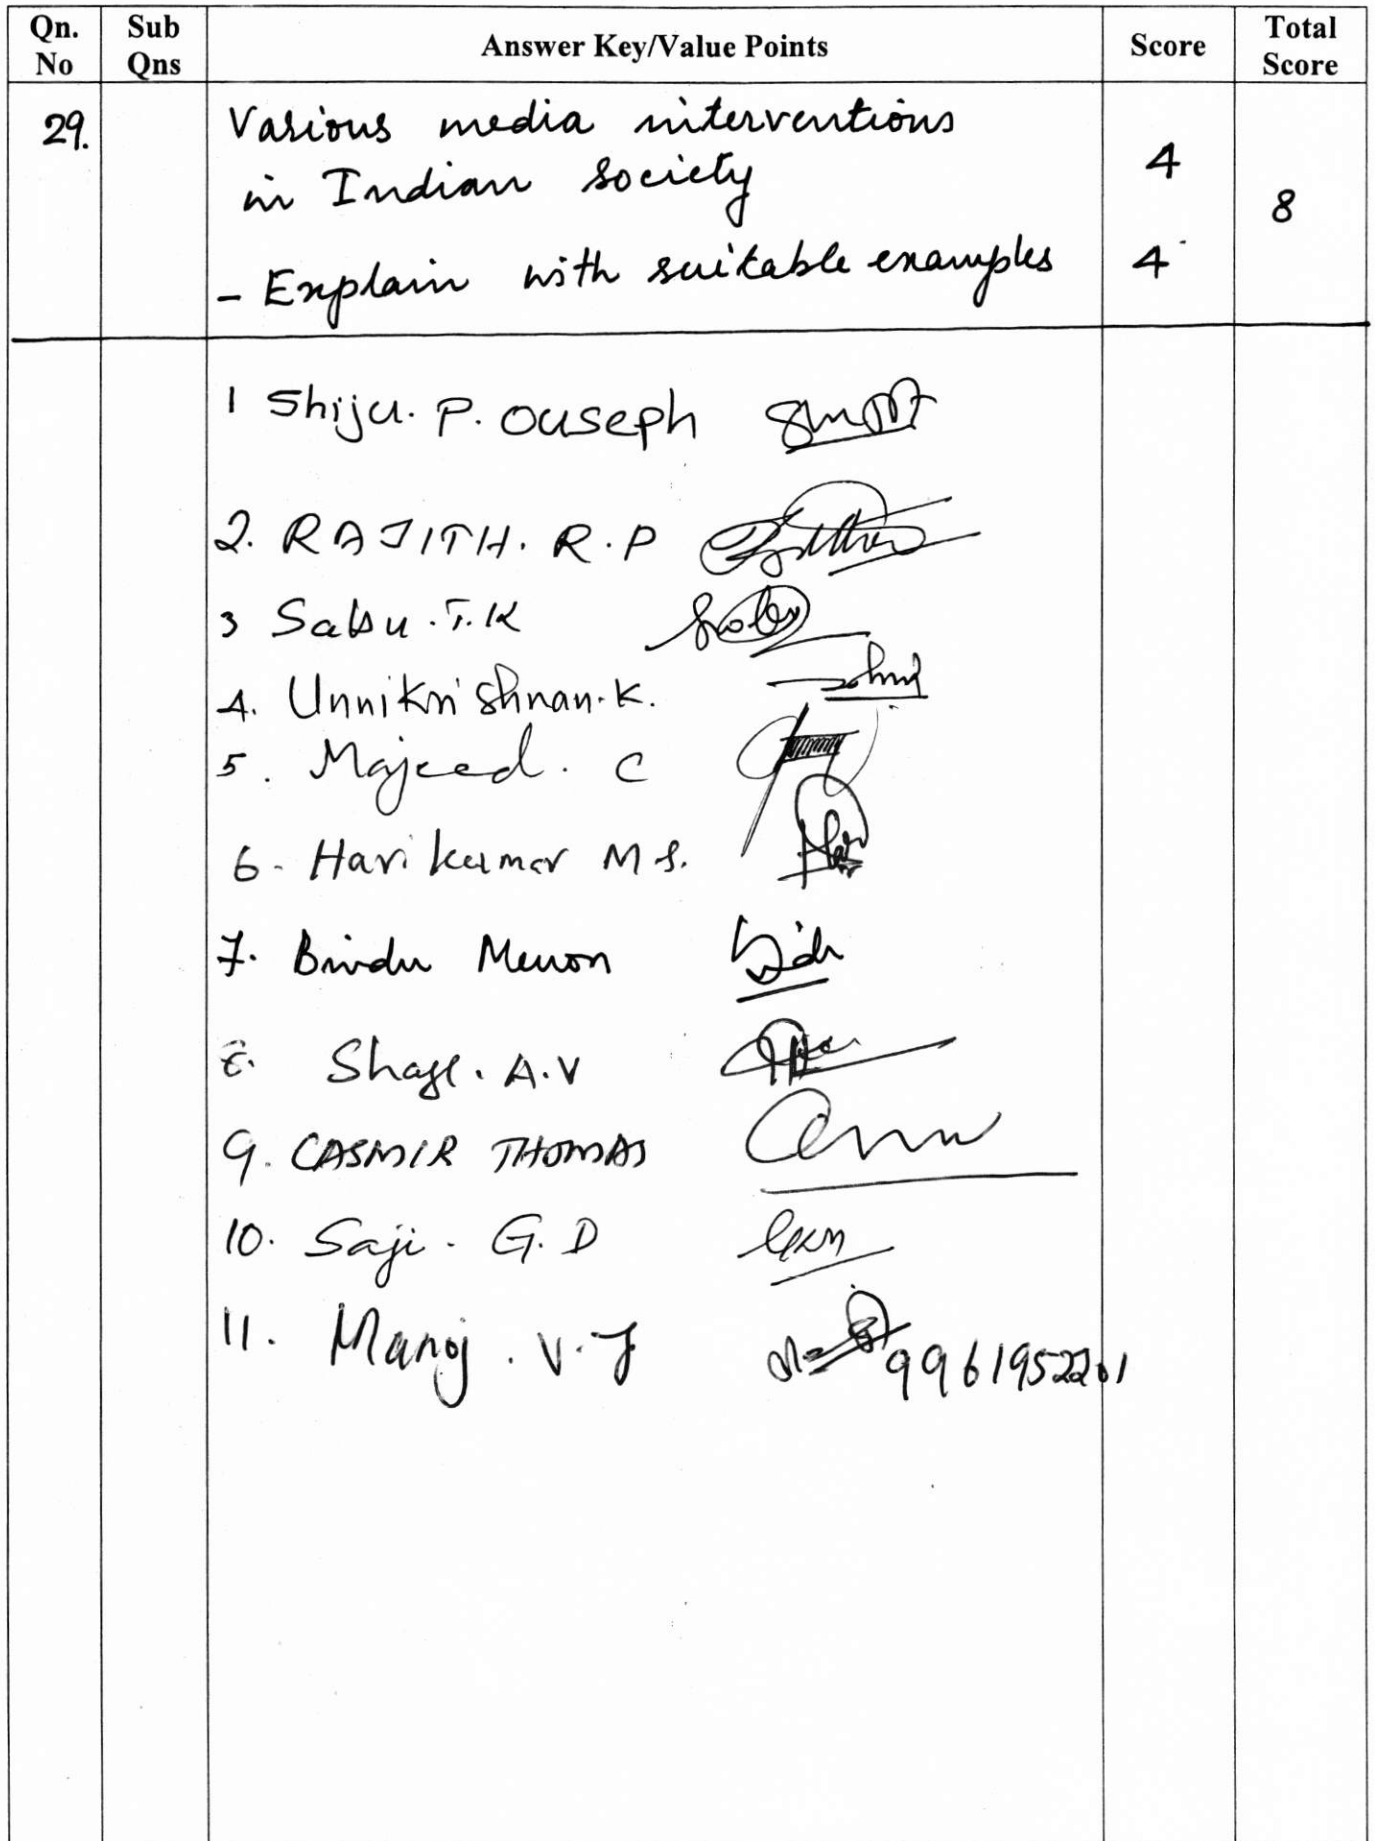 Qn. No Sub Qns Answer Key/Value Points Score Total Score
29. Various media interventions
in Indian society 4
8
- Explain with suitable examples 4
1 Shiju. P. Ouseph
2. RAJITH. R. P
3 Sabu. T. K
4. Unnikrishnan. K.
5. Majeed. C
6. Harikumar M S.
7. Bindu Menon
8. A. V
9. CASMIR THOMAS
10. Saji. G. D
11. Manoj. V. J 9961952201